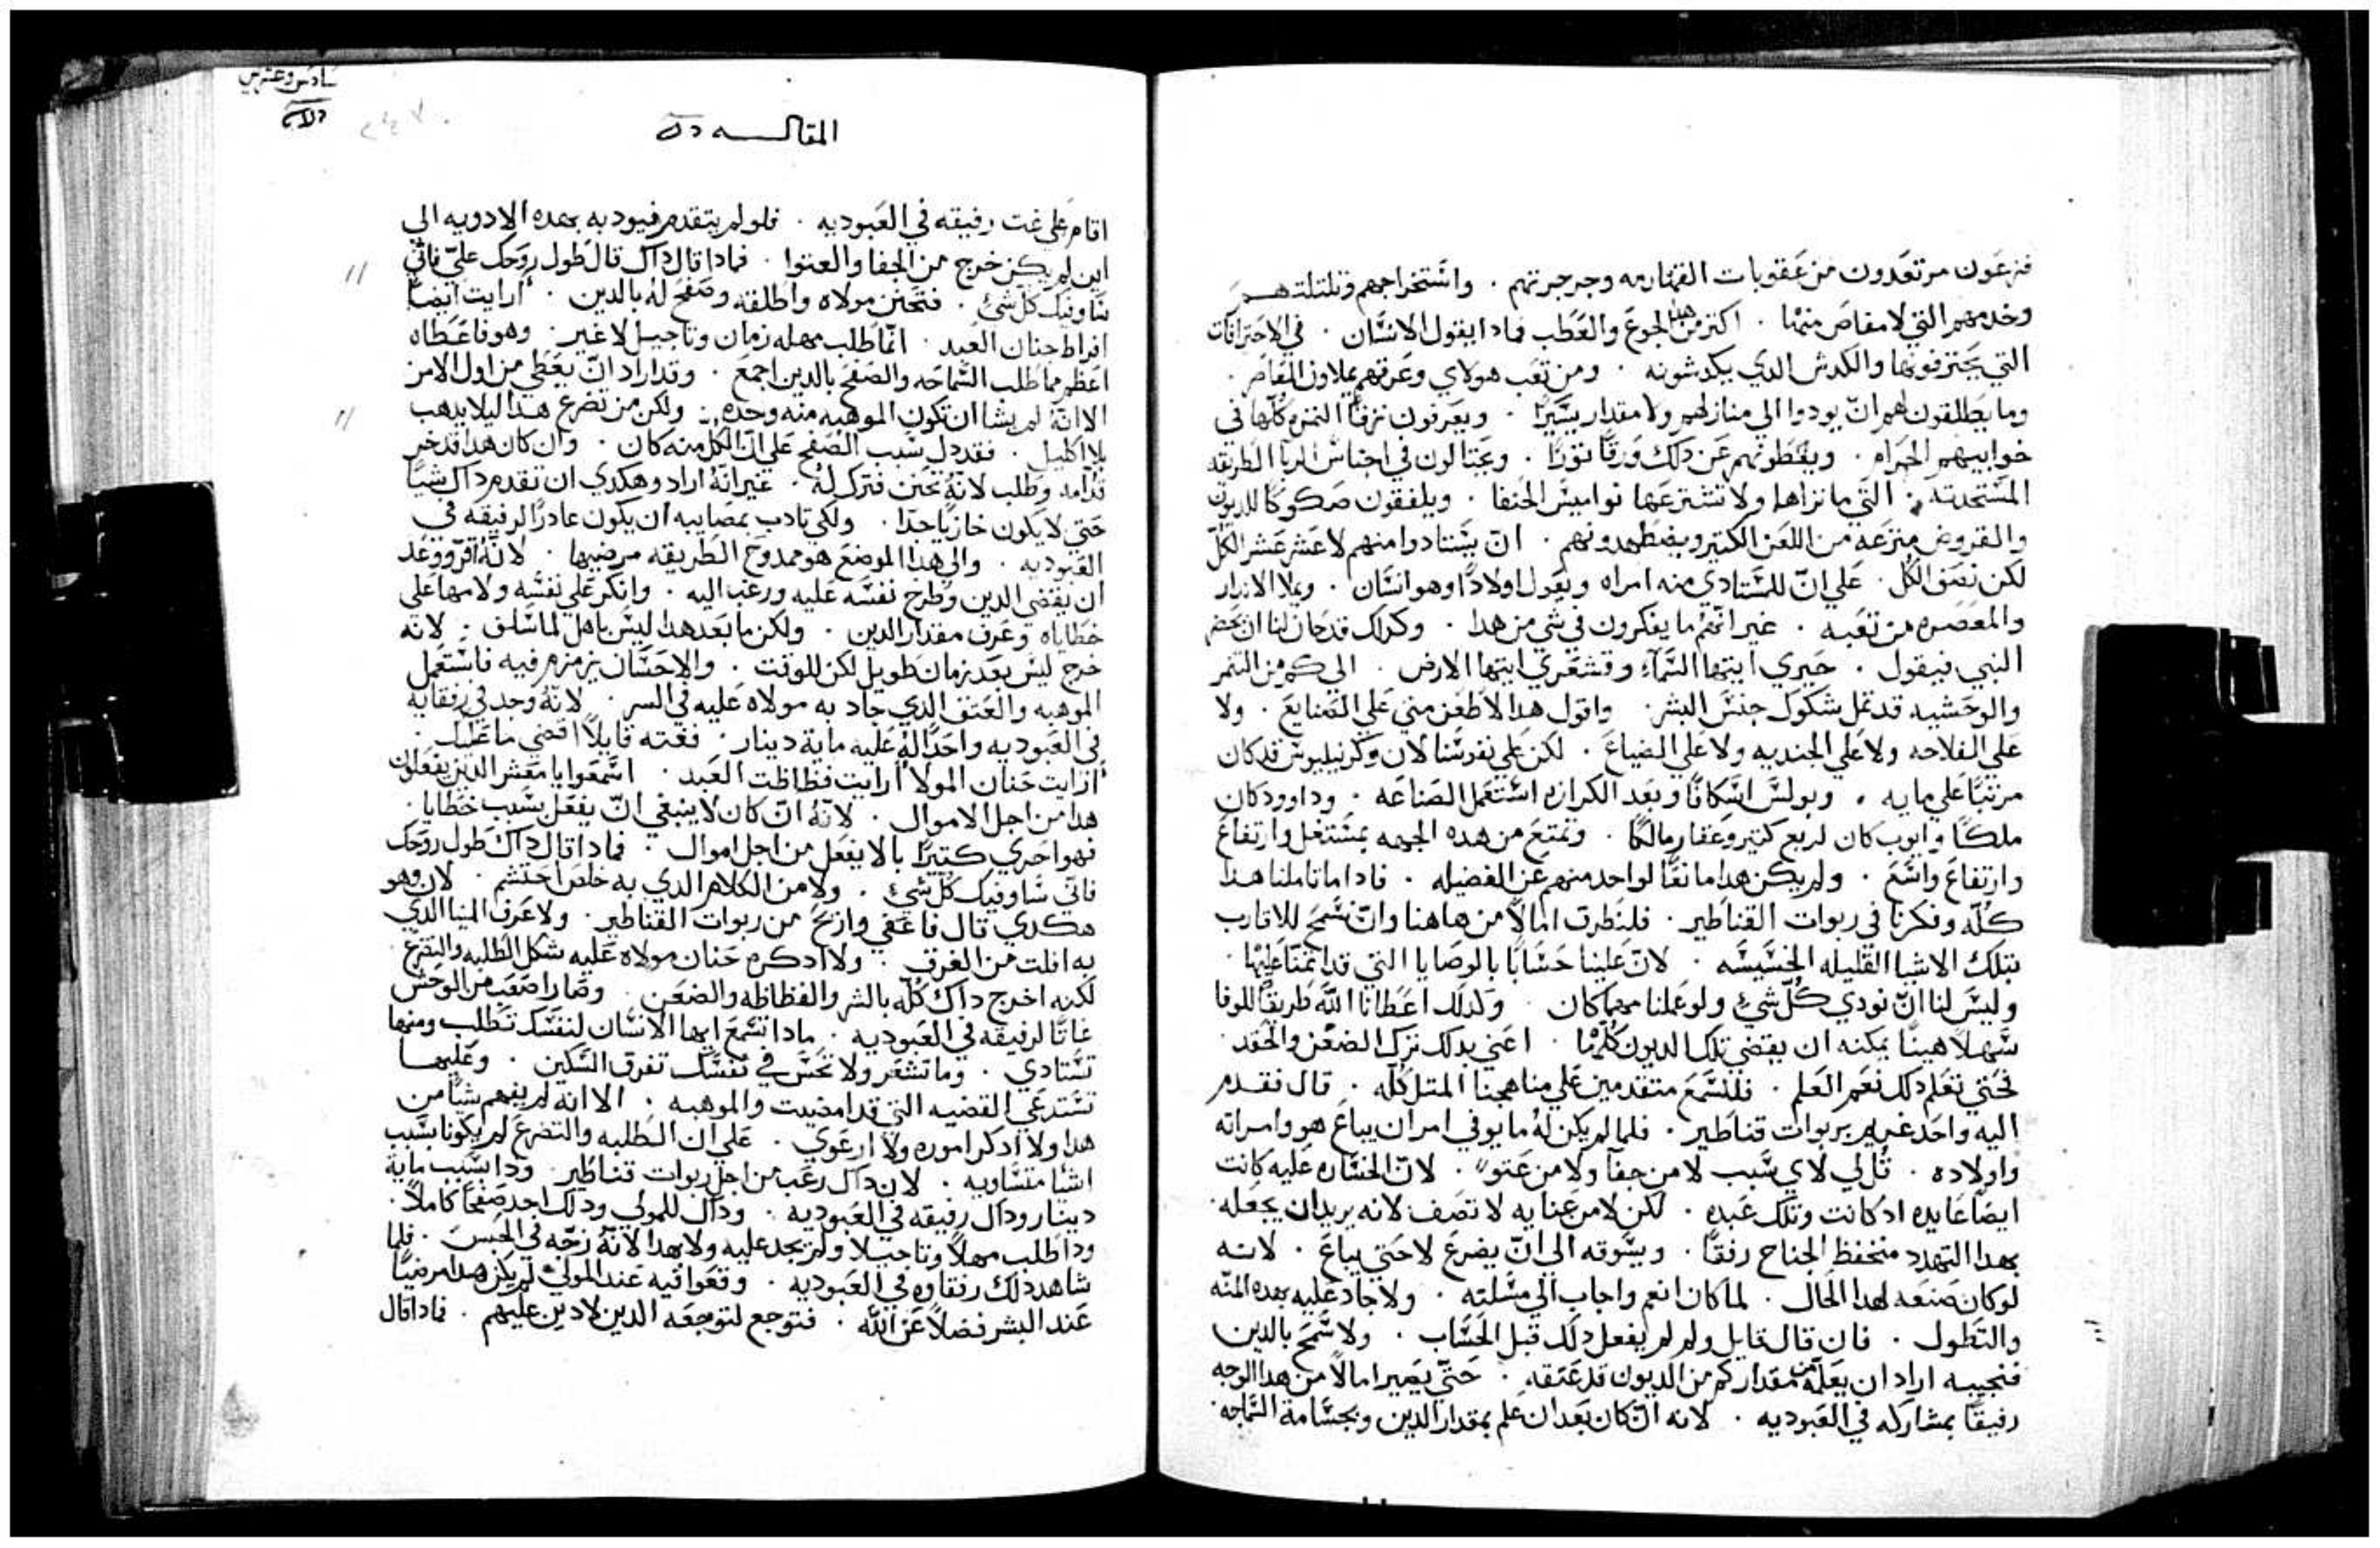 فزعون مرتعدون من عقوبات القهارمه وجرجرتهم . واستخراجهم وتلتلتهم
وخدمهم التي لا مفاص منها . اكترمن هذا الجوع والعطب فمادا يقول الانسان . في الاحترافات
التي يحترفونها والكدش الدي يكدشونه . ومن تعب هولاي وعرقهم يملاون المعاصر .
وما يطلقون لهم ان يودوا الي منازلهم ولا مقدار يسيرا . ويعرفون نزفا التمره كلها في
خوابيهم الحرام . ويعطونهم عن دلك ورقا نزرا . ويحتالون في اجناس الربا الطريقه
المستحدته . التي ما نراها ولا تشترعها نواميس الحنفا . ويلفقون صكوكا للديون
والقروض مترعه من اللعن الكتير ويضطهدونهم . ان يستادوا منهم لا عشر عشر الكل
لكن نصف الكل . علي ان للمستادي منه امراه ويعول اولادا وهو انسان . ويملا الاندار
والمعصره من تعبه . غير انهم ما يفكرون في شي من هدا . وكداك قد حان لنا ان نحضر
النبي فيقول . حيري ايتها السماء وقشعري ايتها الارض . الي كم من التنمر
والوحشيه قد تمل شكول جنس البشر . واقول هدا لا طعن مني علي الصنايع . ولا
علي الفلاحه ولا علي الجنديه ولا علي الضياع . لكن علي نفوسنا لان وكرنيليوس قد كان
مرتبا علي مايه . وبولس اسكافا وبعد الكرازه استعمل الصناعه . وداوود كان
ملكا وايوب كان لربع كتير وعقار مالكا . وتمتع من هده الجهه بمستغل وارتفاع
وارتفاع واسع . ولم يكن هدا مانعا لواحد منهم عن الفضيله . فادا ما تاملنا هدا
كله وفكرنا في ربوات القناطير . فلنطرق امالا من هاهنا وان نسمح للاقارب
بتلك الاشيا القليله الخسيسه . لان علينا حسابا بالوصايا التي قد اتمنا عليها .
وليس لنا ان نودي كل شي ولو عملنا مهما كان . ولدلك اعطانا الله طريقا للوفا
سهلا هينا يمكنه ان يقضي تلك الديون كلها . اعني بدلك ترك الضغن والحقد .
فحتي نعلم دلك نعم العلم . فلنسمع متقدمين علي مناهجنا المتل كله . قال فقدم
اليه واحد غريم بربوات قناطير . فلما لم يكن له ما يوفي امر ان يباع هو وامراته
واولاده . قل لي لاي سبب لا من جفا ولا من عتو . لان الخساره عليه كانت
ايضا عايده اد كانت وتلك عبده . لكن لا من عنايه لا تصف لانه يريد ان يجعله .
بهدا التهدد منخفظ الجناح رفقا . ويسوقه الي ان يضرع لا حتي يباع . لانه
لو كان صنعه لهدا الحال . لما كان انعم واجاب الي مسلته . ولا جاد عليه بهده المنه
والتطول . فان قال قايل ولم لم يفعل دلك قبل الحساب . ولا سمح بالدين
فنجيبه اراد ان يعلمه من مقدار كم من الديون قد عتقه . حتي يصير امالا من هدا الوجه
رفيقا بمشاركه في العبوديه . لانه ان كان بعد ان علم بمقدار الدين وبجسامة السماحه .
سادس وعشرين
المقالــــه
اقام علي غت رفيقه في العبوديه . فلو لم يتقدم فيودبه بهده الادويه الي
اين لم يكن خرج من الجفا والعتوا . فمادا قال داك قال طول روحك علي فاني
ساوفيك كل شي . فتحنن مولاه واطلقه وصفح له بالدين . ارايت ايضا
افراط حنان العبد . انما طلب مهله زمان وتاجيل لا غير . وهو فاعطاه
اعظم مما طلب السماحه والصفح بالدين اجمع . وقد اراد ان يعطي من اول الامر
الا انه لم يشا ان تكون الموهبه منه وحده . ولكن من تضرع هدا ليلا يدهب
بلا اكليل . فقد دل سبب الصفح علي ان الكل منه كان . وان كان هدا قد خر
قدامه وطلب لانه تحنن فترك له . غير انه اراد وهكدي ان تقدم داك شيا
حتي لا يكون خازيا جدا . ولكي تادب بمصايبه ان يكون عادرا لرفيقه في
العبوديه . والي هدا الموضع هو ممدوح الطريقه مرضيها . لانه اقر ووعد
ان يقضي الدين وطرح نفسه عليه ورغب اليه . وانكر علي نفسه ولامها علي
خطاياه وعرف مقدار الدين . ولكن ما بعد هدا ليس باهل لما سلف . لانه
خرج ليس بعد زمان طويل لكن للوقت . والاحسان يزمزم فيه فاستعمل
الموهبه والعتق الدي جاد به مولاه عليه في السر . لانه وجد في رفقايه
في العبوديه واحدا له عليه ماية دينار . فغته قايلا اقضي ما عليك .
ارايت حنان المولا ارايت فظاظت العبد . اسمعوا يا معشر الدين يفعلون
هدا من اجل الاموال . لانه ان كان لا ينبغي ان يفعل بسبب خطايا .
فهو احري كتيرا بالا يفعل من اجل اموال . فمادا قال داك طول روحك
فاني ساوفيك كل شي . ولا من الكلام الدي به خلص احتشم . لان وهو
هكدي قال فاعفي وازيح من ربوات القناطير . ولا عرف المينا الدي
به افلت من الغرق . ولا ادكره حنان مولاه عليه شكل الطلبه والتضرع
لكنه اخرج داك كله بالشر والفظاظه والضغن . وصار اصعب من الوحش
غاتا لرفيقه في العبوديه . مادا تسمع ايها الانسان لنفسك تطلب ومنها
تستادي . وما تشعر ولا تحس في نفسك تفرق السكين . وعليها
تستدعي القضيه التي قد امضيت والموهبه . الا انه لم يفهم شيا من
هدا ولا ادكر اموره ولا ارعوي . علي ان الطلبه والتضرع لم يكونا بسبب
اشيا متساويه . لان داك رغب من اجل ربوات قناطير . ودا بسبب ماية
دينار وداك رفيقه في العبوديه . وداك للمولي ودلك اجد صفحا كاملا .
ودا طلب مهلا وتاجيلا ولم يجد عليه ولا بهدا لانه زجه في الحبس . فلما
شاهد دلك رفقاوه في العبوديه . وقعوا فيه عند المولي لم يكن هدا مرضيا
عند البشر فضلا عن الله . فتوجع لتوجعه الدين لا دين عليهم . فمادا قال